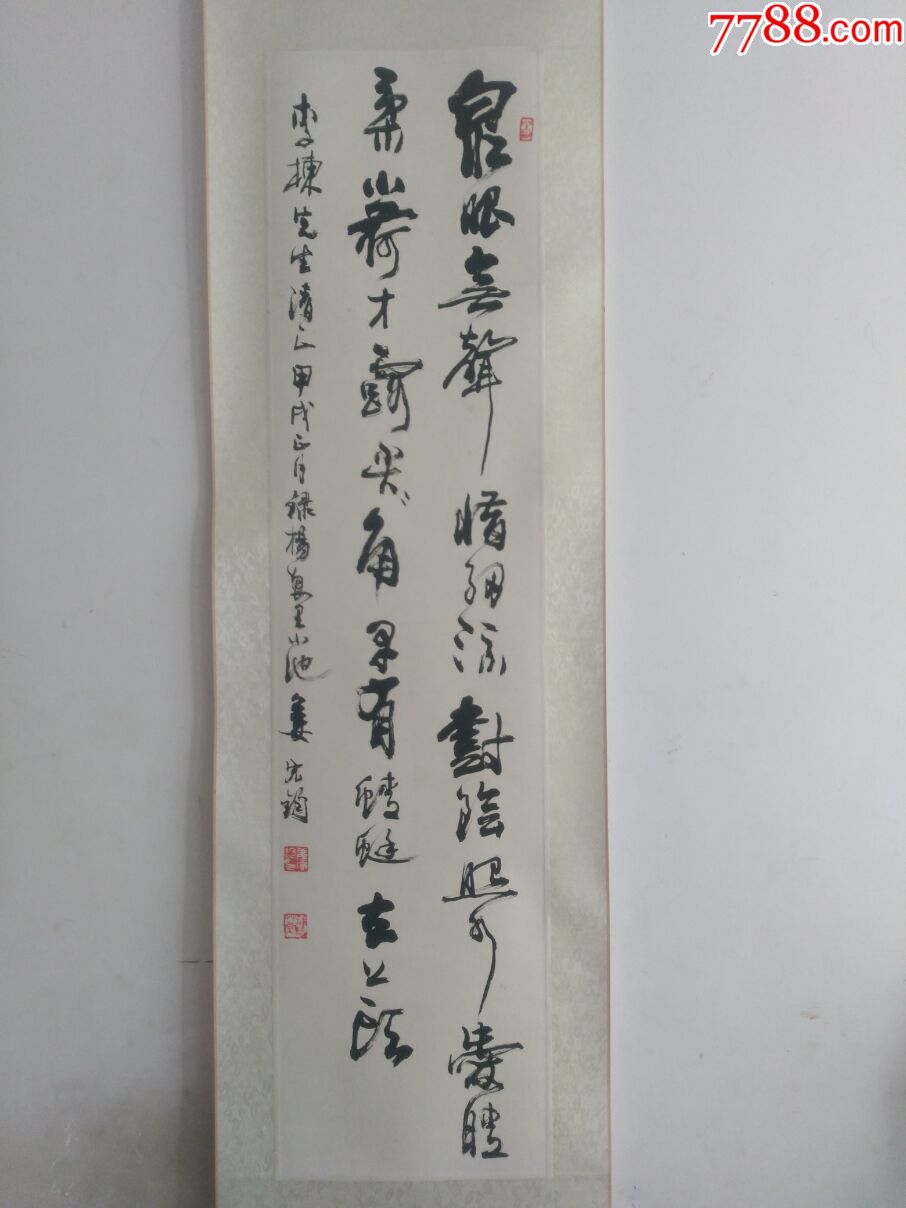 7788.com
泉眼無聲惜細流樹陰照水愛晴
柔小荷才露尖〻角早有蜻蜓立上頭
李棟先生清正甲戌正月錄楊萬里小池姜